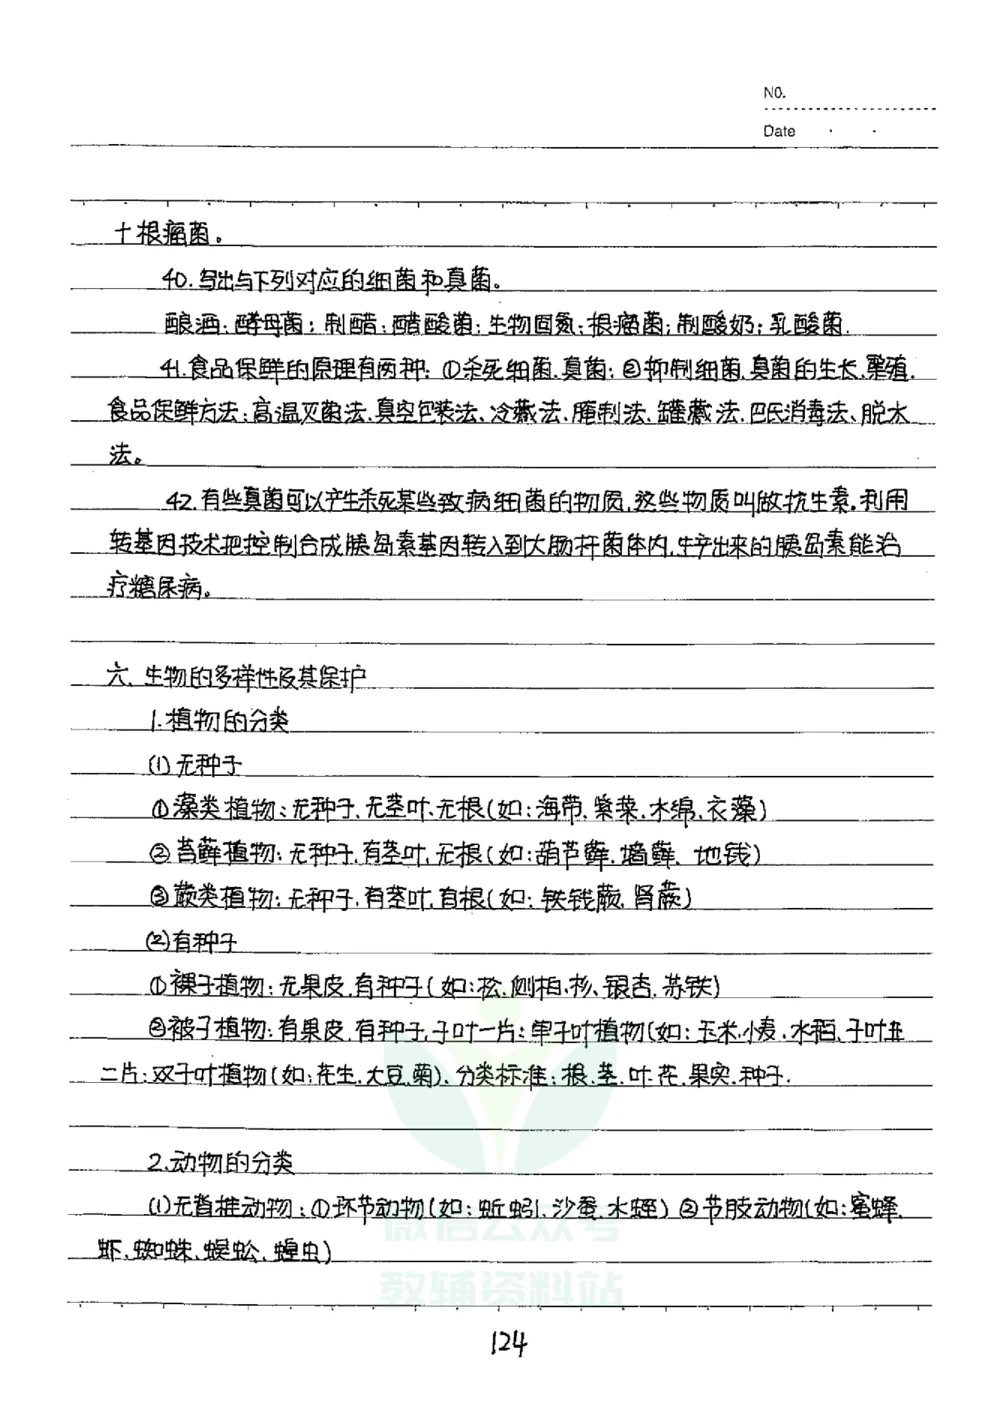 NO.
Date
十根瘤菌。
40.写出与下列对应的细菌和真菌。
酿酒:酵母菌;制醋:醋酸菌;生物固氮:根瘤菌;制酸奶:乳酸菌.
41.食品保鲜的原理有两种:①杀死细菌.真菌;②抑制细菌.真菌的生长.繁殖.
食品保鲜方法:高温灭菌法.真空包装法、冷藏法.腌制法.罐藏法.巴氏消毒法、脱水
法。
42.有些真菌可以产生杀死某些致病细菌的物质,这些物质叫做抗生素.利用
转基因技术把控制合成胰岛素基因转入到大肠杆菌体内,生产出来的胰岛素能治
疗糖尿病。
六、生物的多样性及其保护
1.植物的分类
(1)无种子
①藻类植物:无种子.无茎叶.无根(如:海带.紫菜.水绵.衣藻)
②苔藓植物:无种子.有茎叶.无根(如:葫芦藓.墙藓、地钱)
③蕨类植物:无种子.有茎叶.有根(如:铁线蕨.肾蕨)
(2)有种子
①裸子植物:无果皮.有种子(如:松.侧柏.杉、银杏.苏铁)
②被子植物:有果皮.有种子,子叶一片:单子叶植物(如:玉米.小麦.水稻.子叶
二片:双子叶植物(如:花生.大豆.菊).分类标准:根.茎.叶.花.果实.种子.
2.动物的分类
(1)无脊椎动物:①环节动物(如:蚯蚓.沙蚕.水蛭)②节肢动物(如:蜜蜂.
虾.蜘蛛.蜈蚣.蝗虫)
微信公众号
教辅资料站
124